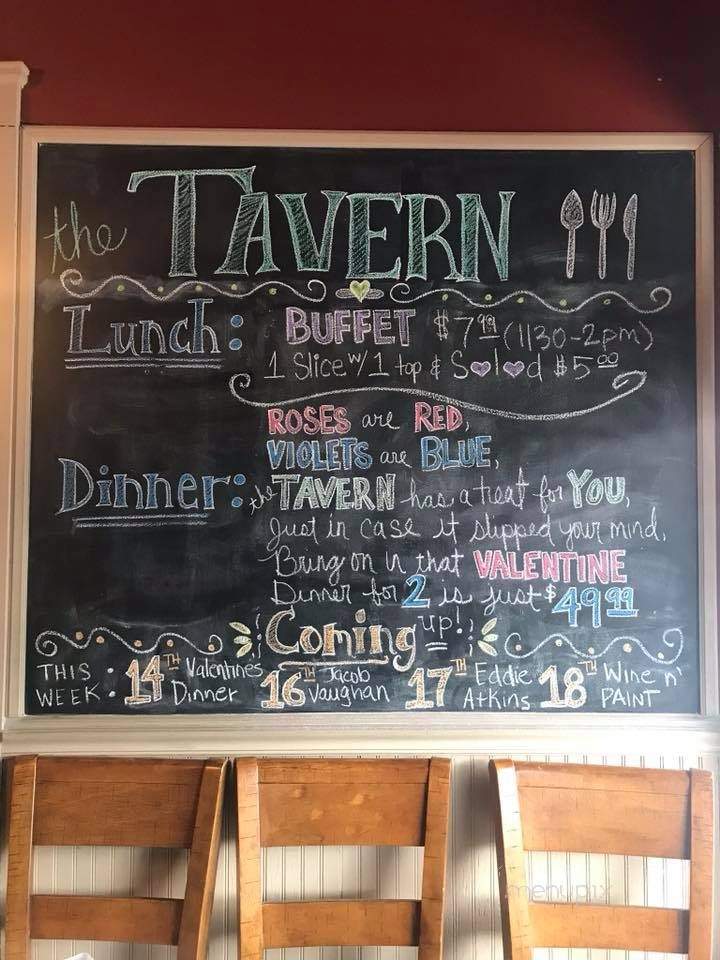 the TAVERN
Lunch: BUFFET $7.99 (1130-2pm)
1 Slice w/ 1 top & Salad $5.00
ROSES are RED,
VIOLETS are BLUE,
Dinner: the TAVERN has a treat for YOU,
Just in case it slipped your mind,
Bring on in that VALENTINE
Dinner for 2 is just $49.99
Coming up!
THIS WEEK: 14TH Valentines Dinner 16TH Jacob Vaughan 17TH Eddie Atkins 18TH Wine n' PAINT
menupix